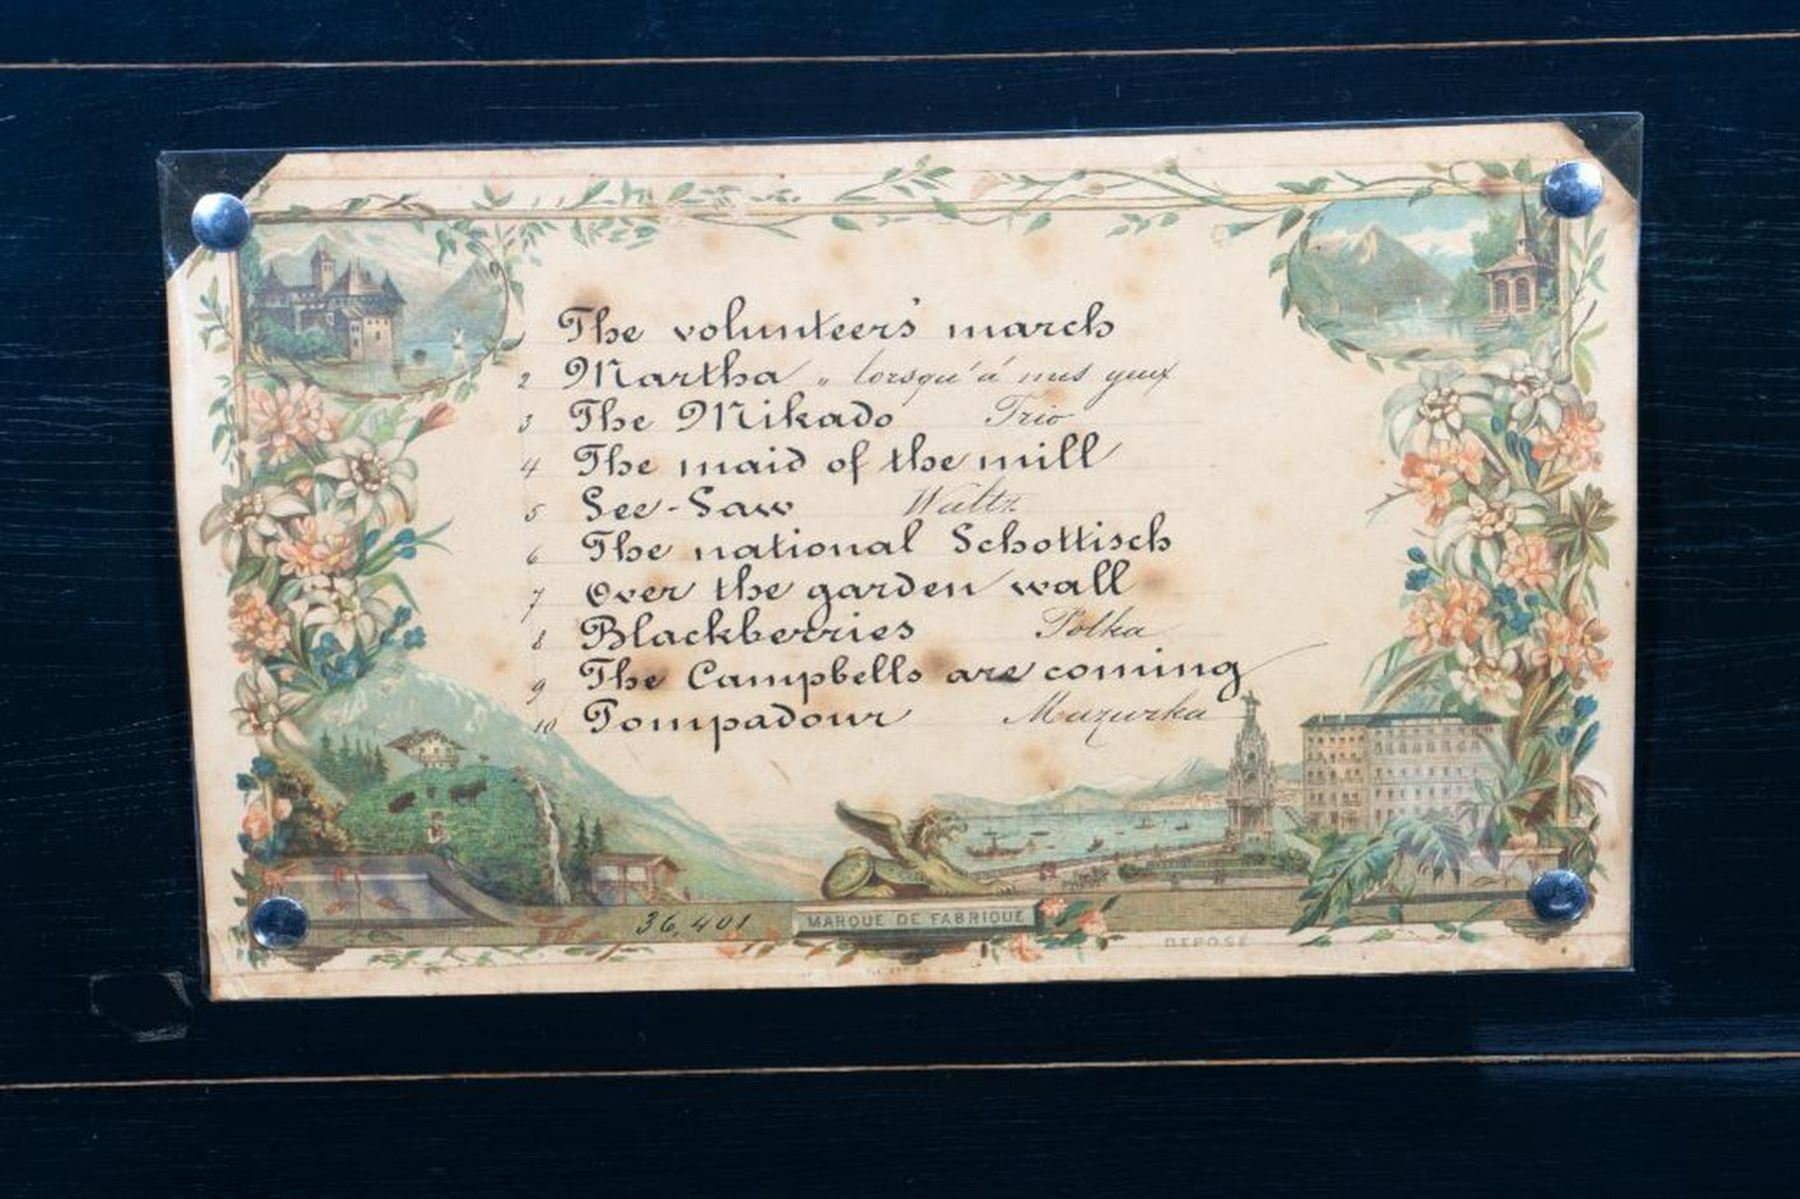 1 The volunteers' march
2 Martha „ lorsqu'à mes yeux
3 The Mikado Trio
4 The maid of the mill
5 See-Saw Waltz
6 The national Schottisch
7 Over the garden wall
8 Blackberries Polka
9 The Campbells are coming
10 Pompadour Mazurka
36,401
MARQUE DE FABRIQUE
DEPOSÉ